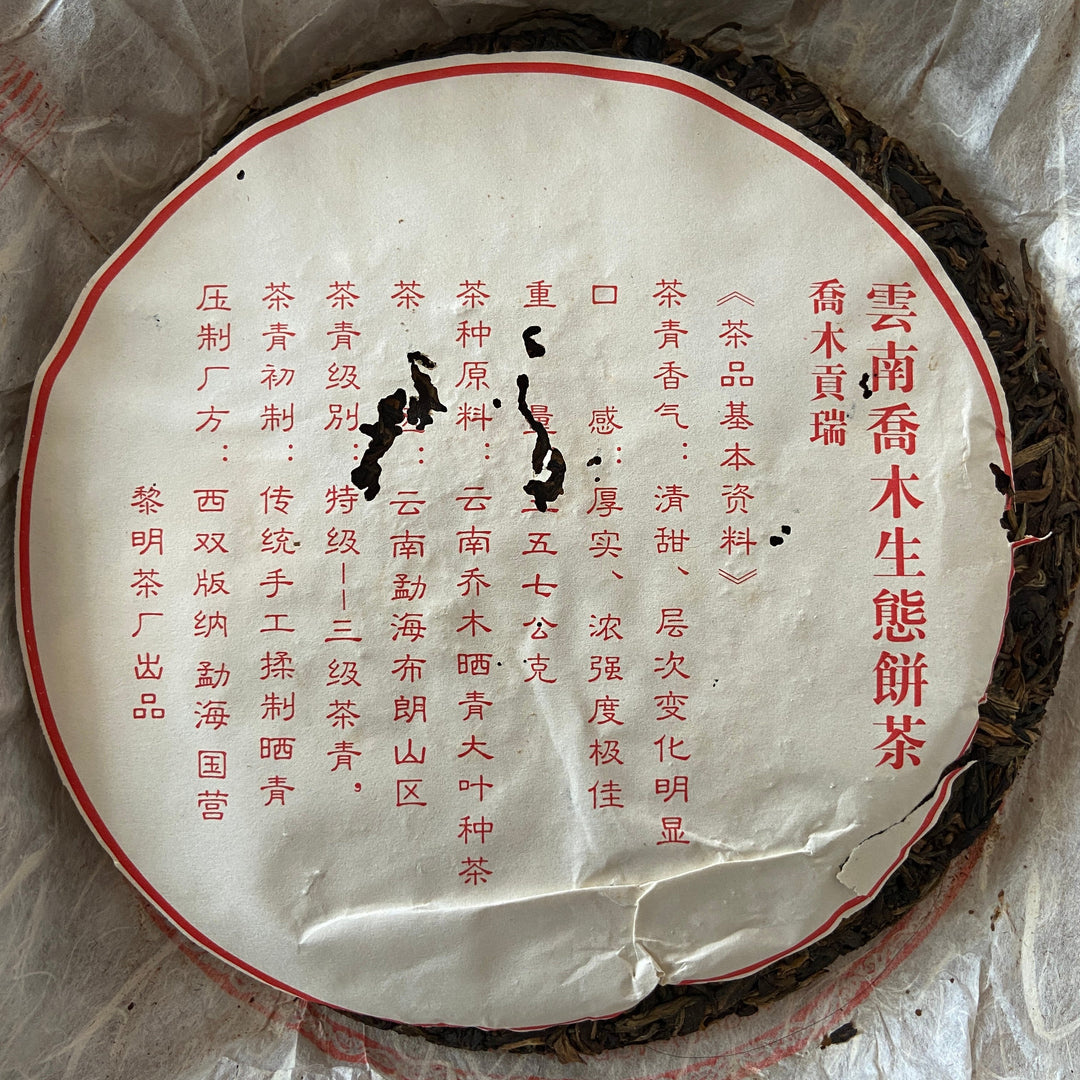 雲南喬木生態餅茶
喬木貢瑞
《茶品基本资料》
茶青香气：清甜、层次变化明显
口感：厚实、浓强度极佳
重量 五七公克
茶种原料：云南乔木晒青大叶种茶
茶 ：云南勐海布朗山区
茶青级别：特级——三级茶青，
茶青初制：传统手工揉制晒青
压制厂方：西双版纳 勐海 国营
黎明茶厂出品